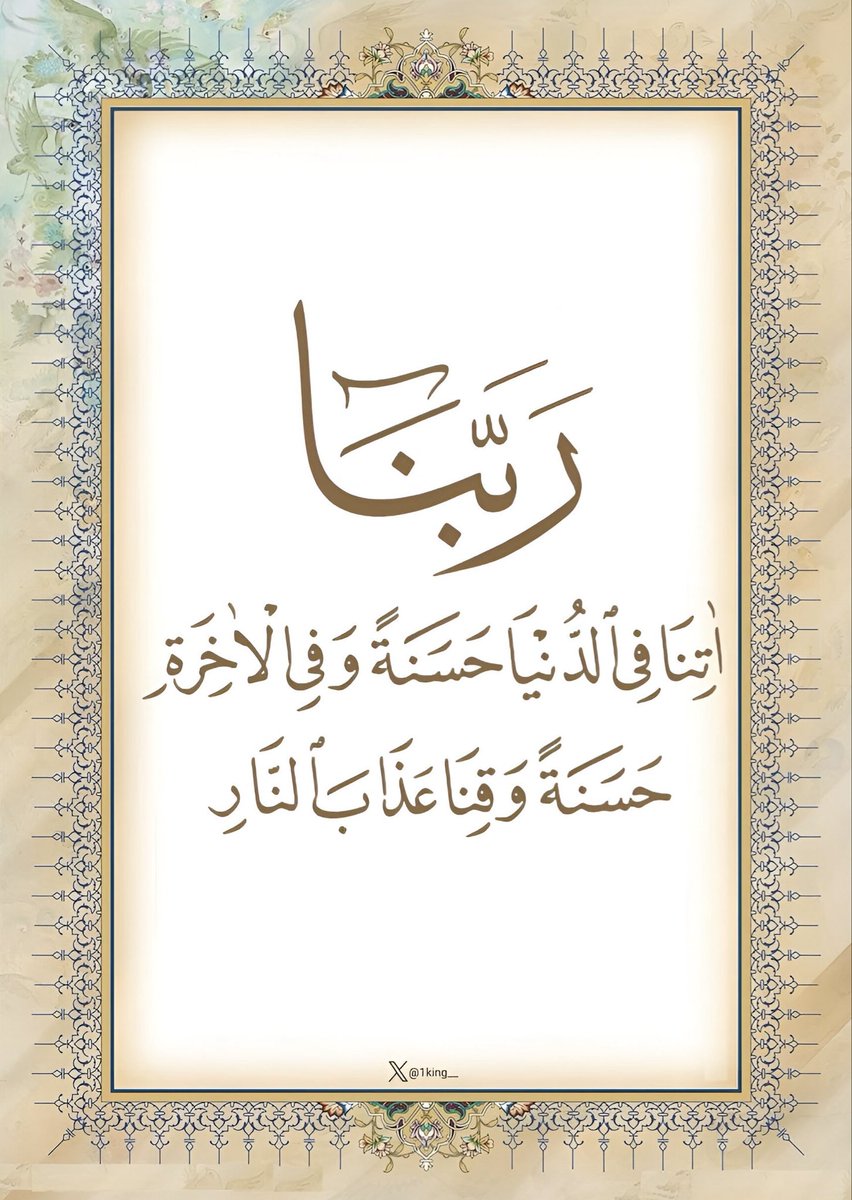 رَبَّنَآ
اٰتِنَا فِی ٱلدُّنْیَا حَسَنَةً وَفِی الْاٰخِرَةِ
حَسَنَةً وَقِنَا عَذَابَ ٱلنَّارِ
𝕏 @1king__